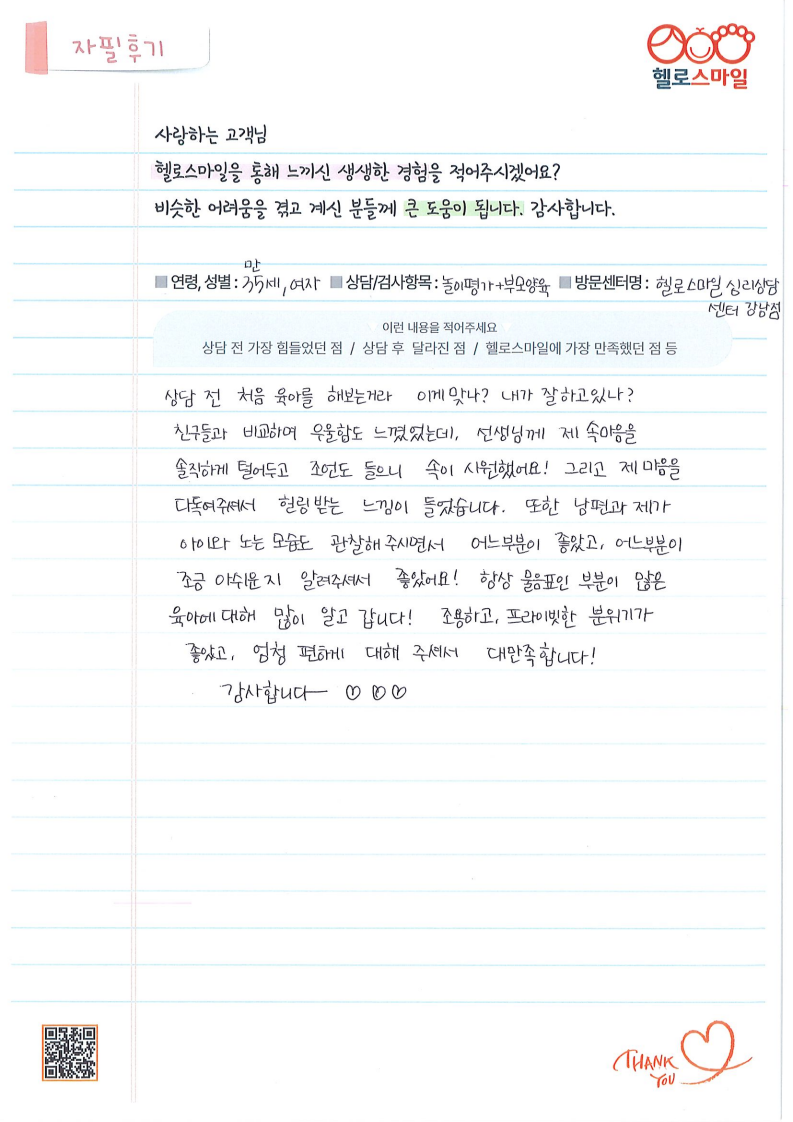 자필후기
헬로스마일
사랑하는 고객님
헬로스마일을 통해 느끼신 생생한 경험을 적어주시겠어요?
비슷한 어려움을 겪고 계신 분들께 큰 도움이 됩니다. 감사합니다.
연령, 성별 : 만 35세, 여자 상담/검사항목 : 놀이평가+부모양육 방문센터명 : 헬로스마일 심리상담
센터 강남점
이런 내용을 적어주세요
상담 전 가장 힘들었던 점 / 상담 후 달라진 점 / 헬로스마일에 가장 만족했던 점 등
상담 전 처음 육아를 해보는거라 이게맞나? 내가 잘하고있나?
친구들과 비교하여 우울함도 느꼈었는데, 선생님께 제 속마음을
솔직하게 털어두고 조언도 들으니 속이 시원했어요! 그리고 제 마음을
다독여주셔서 힐링받는 느낌이 들었습니다. 또한 남편과 제가
아이와 노는 모습도 관찰해 주시면서 어느부분이 좋았고, 어느부분이
조금 아쉬운지 알려주셔서 좋았어요! 항상 물음표인 부분이 많은
육아에 대해 많이 알고 갑니다! 조용하고, 프라이빗한 분위기가
좋았고, 엄청 편하게 대해 주셔서 대만족합니다!
감사합니다ㅡ ♡♡♡
THANK
YOU